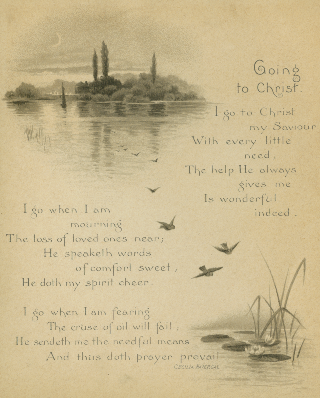 Going
to Christ.
I go to Christ
my Saviour
With every little
need.
The help He always
gives me
Is wonderful
indeed.
I go when I am
mourning
The loss of loved ones near;
He speaketh words
of comfort sweet,
He doth my spirit cheer.
I go when I am fearing
The cruse of oil will fail.
He sendeth me the needful means
And thus doth prayer prevail.